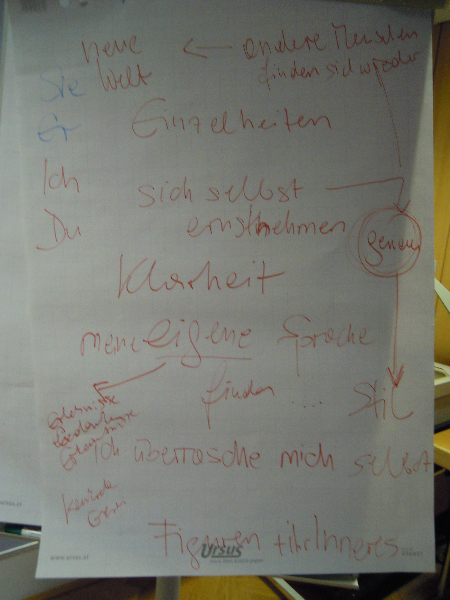 neue ← andere Menschen
Sie Welt finden sich wieder
Er Einzelheiten
Ich sich selbst
Du ernstnehmen
genau
Klarheit
meine eigene Sprache
finden .... Stil
Ich überrasche mich selbst
Figuren + ihr Inneres
www.ursus.at
Ursus